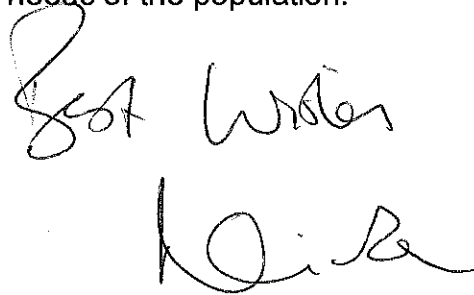 needs of the population.
Best Wishes